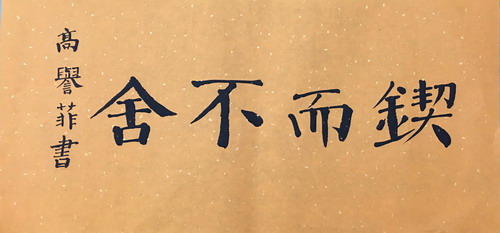 鍥而不舍
高譽菲書